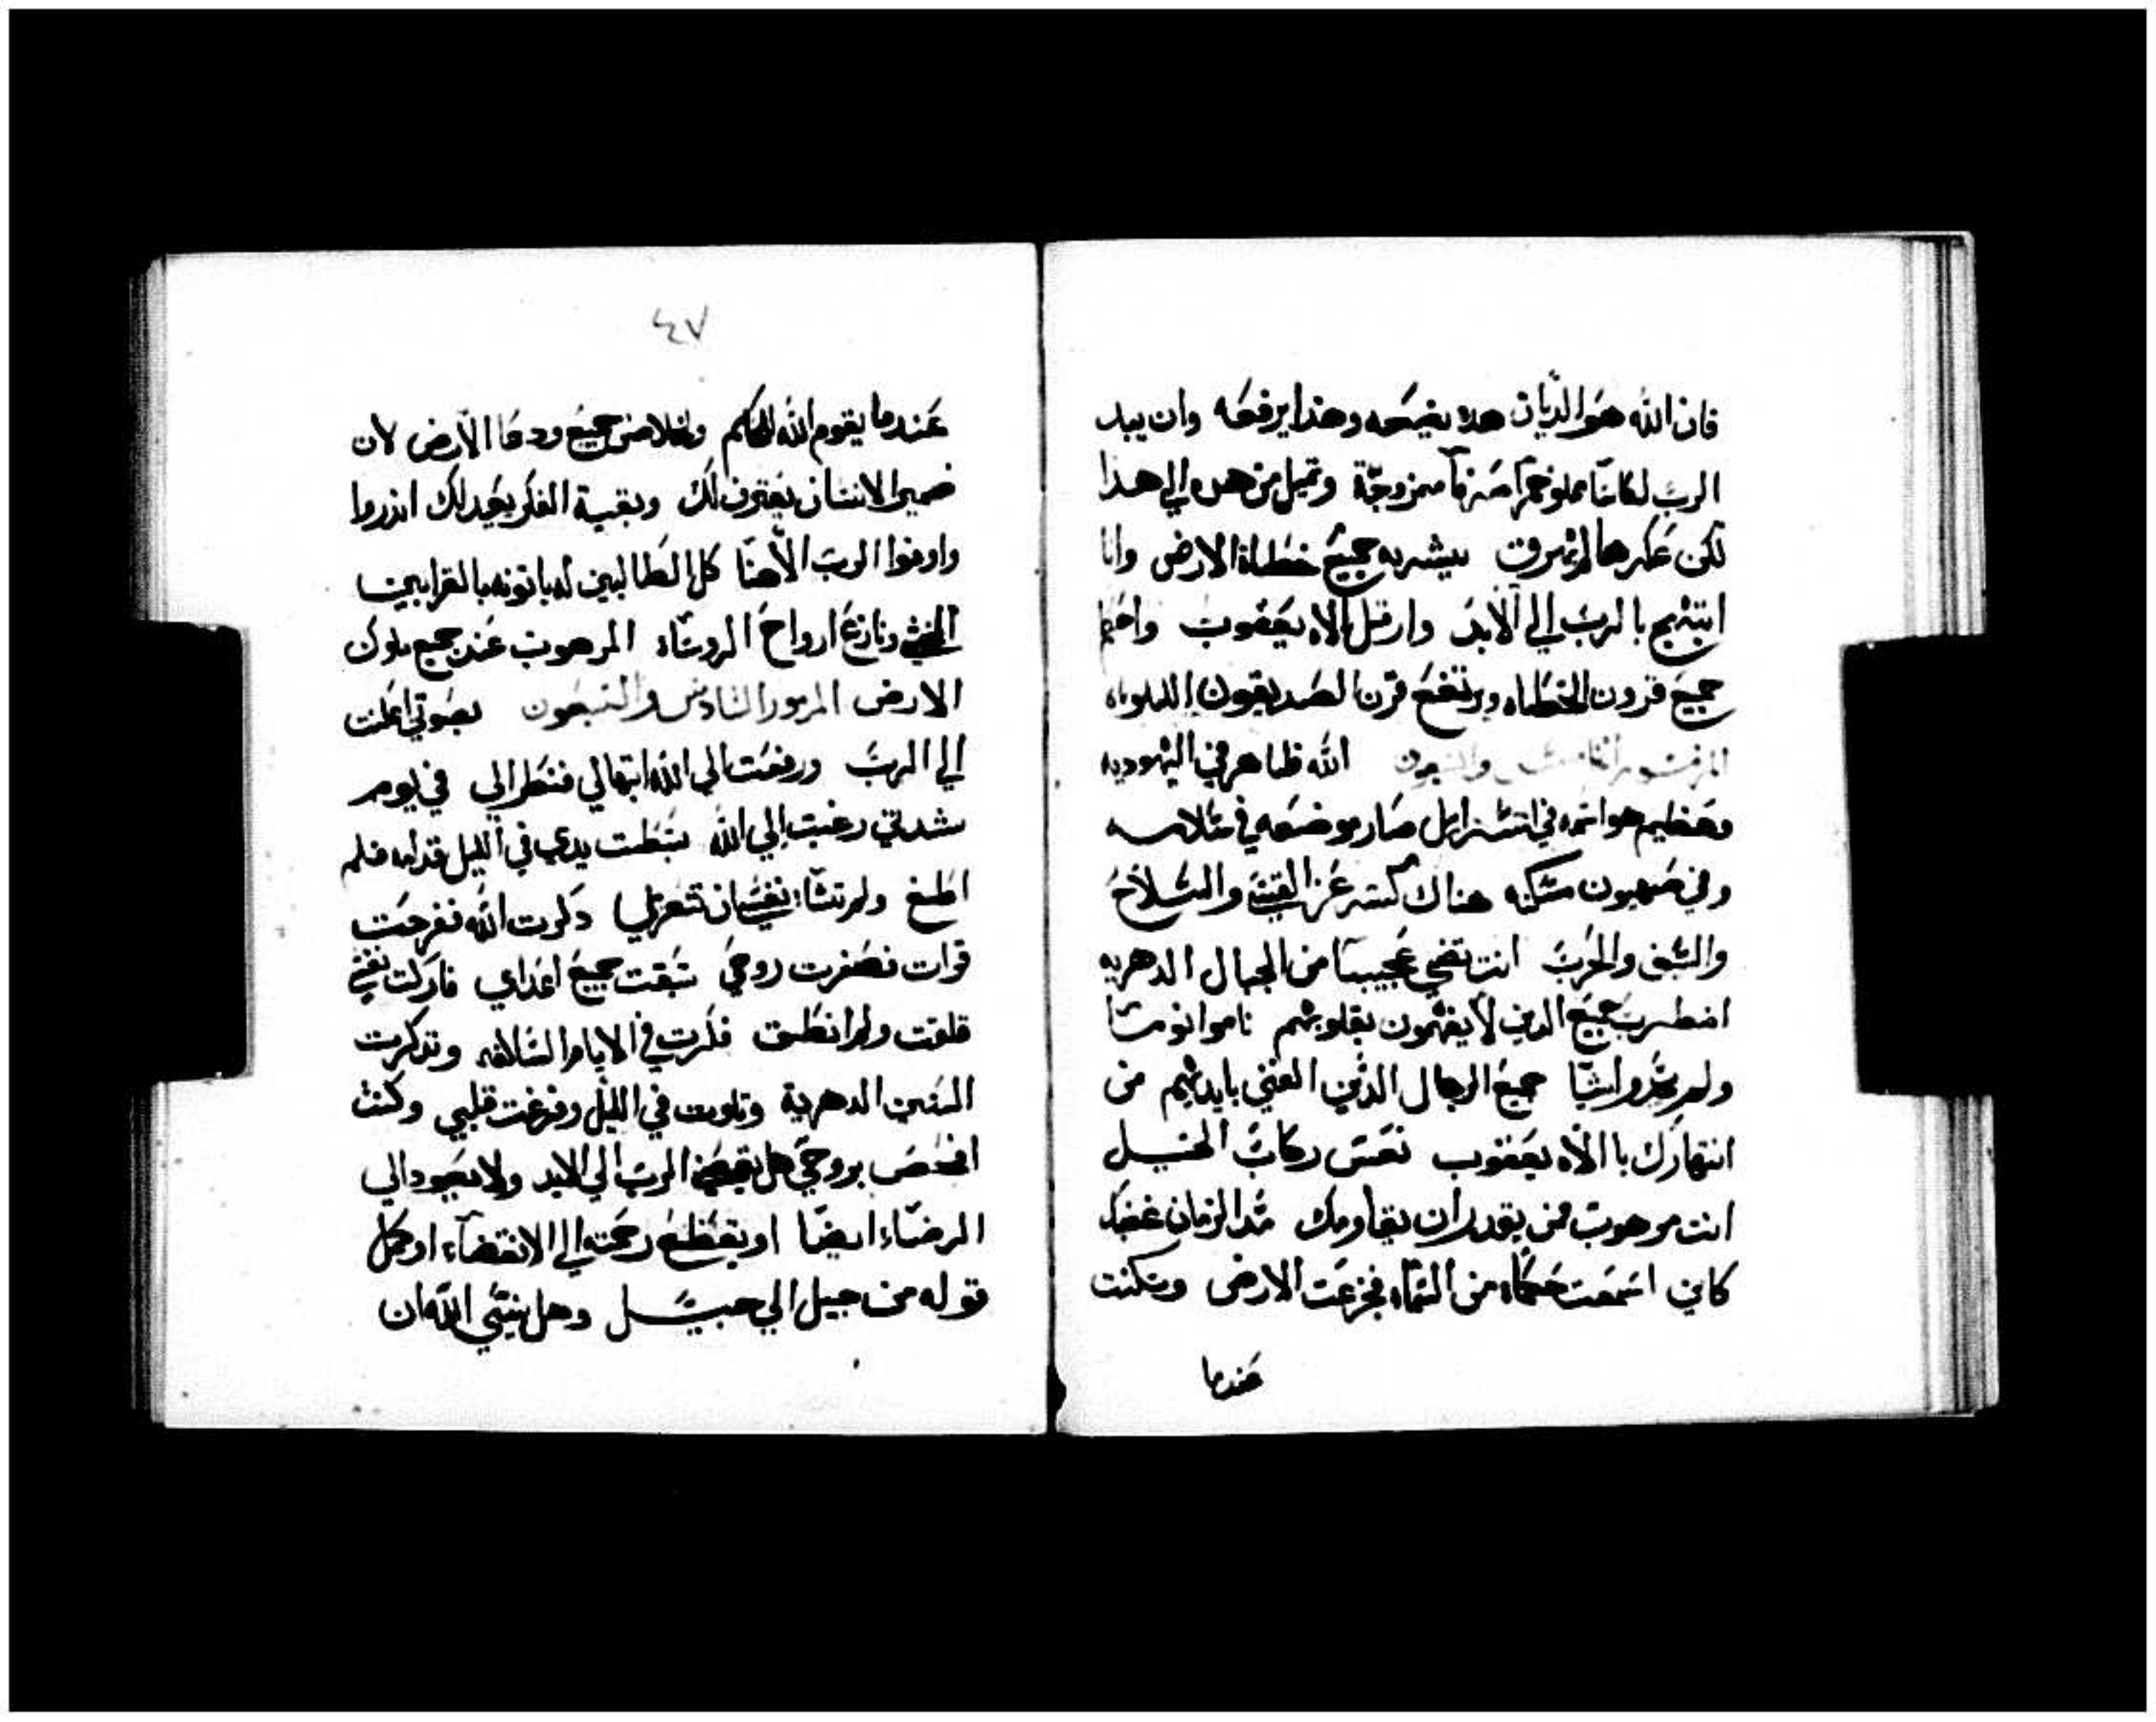 فان الله هو الديان هدا يضعه وهذا يرفعه وان بيد
الرب لكاسا مملو خمرا صرفا ممزوجة وتميل من هده الي هدا
لكن عكرها لم يهرق يشربه جميع خطاة الارض وانا
ابتهج بالرب الي الابد وارتل لالاه يعقوب واحطم
جميع قرون الخطاه ويرتفع قرن الصديقون الليلوياه
المزمور الخامس والسبعون الله ظاهر في اليهوديه
وعظيم هو اسمه في اسرايل صار موضعه في سلامه
وفي صهيون مسكنه هناك كسر عز القسي والسلاح
والسيف والحرب انت تضي عجيبا من الجبال الدهريه
اضطرب جميع الدين لا يفهمون بقلوبهم ناموا نومتا
ولم يجدوا شيا جميع الرجال الدين الغني بايديهم من
انتهارك يا الاه يعقوب نعس ركاب الخيل
انت مرهوب فمن يقدر ان يقاومك مند الزمان غضبك
كاين اسمعت حكما من السما فجزعت الارض وسكنت
عندما
٤٧
عندما يقوم الله للحكم ولخلاص جميع ودعا الارض لان
ضمير الانسان يعترف لك وبقية الفكر يعيد لك اندروا
واوفوا الرب الاهنا كل الطالبين له ياتونه بالقرابين
نازع ارواح الروساء المرهوب عند جميع ملوك
الارض المزمور السادس والسبعون بصوتي اعلنت
الي الرب ورفعت الي الله ابتهالي فنظر الي في يوم
شدتي رغبت الي الله بسطت يدي في الليل قدامه فلم
اطغ ولم تشاء نفسي ان تتعزي دكرت الله ففرحت
قرات فصغرت روحي سبقت جميع اعداي فادركت نفسي
قلقت ولم انطق فكرت في الايام السالفه وتدكرت
السنين الدهرية وتلوت في الليل وفرغت قلبي وكنت
افحص بروحي هل يقصي الرب الي الابد ولا يعود الي
الرضاء ايضا او يقطع رحمته الي الانقضاء او كمل
قوله من جيل الي جيل وهل ينسي الله ان